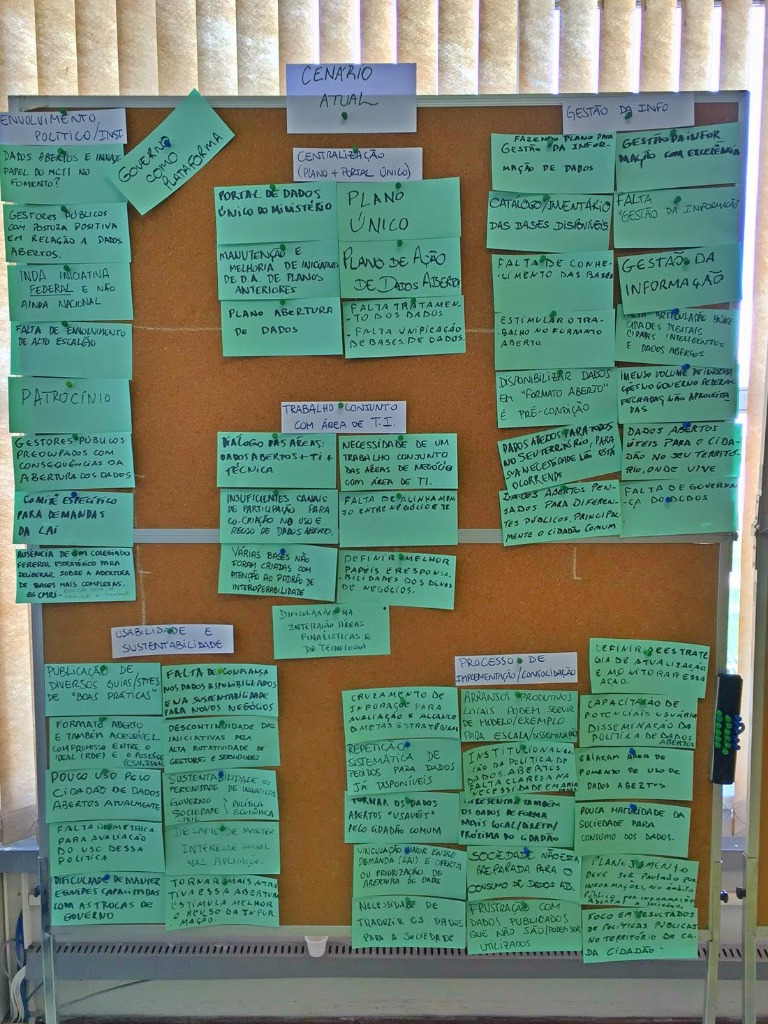 CENÁRIO
ATUAL
ENVOLVIMENTO
POLÍTICO/INST.
DADOS ABERTOS E
PAPEL DO MCTI NO
FOMENTO?
GOVERNO
COMO
PLATAFORMA
GESTORES PÚBLICOS
COM POSTURA POSITIVA
EM RELAÇÃO A DADOS
ABERTOS.
INDA INICIATIVA
FEDERAL E NÃO
AINDA NACIONAL
FALTA DE ENVOLVIMENTO
DE ALTO ESCALÃO
PATROCÍNIO
GESTORES PÚBLICOS
PREOCUPADOS COM
CONSEQUÊNCIAS DA
ABERTURA DOS DADOS
COMITÊ ESPECÍFICO
PARA DEMANDAS
DA LAI
AUSÊNCIA DE UM COLEGIADO
FEDERAL ESTRATÉGICO PARA
DELIBERAR SOBRE A ABERTURA
DE BASES MAIS COMPLEXAS.
CENTRALIZAÇÃO
(PLANO + PORTAL ÚNICO)
PORTAL DE DADOS
ÚNICO DO MINISTÉRIO
PLANO
ÚNICO
MANUTENÇÃO E
MELHORIA DE INICIATIVAS
DE D.A. DE PLANOS
ANTERIORES
PLANO DE AÇÃO
DE DADOS ABERTOS
PLANO ABERTURA
DE DADOS
- FALTA TRATAMEN-
TO DOS DADOS
- FALTA UNIFICAÇÃO
DE BASES DE DADOS
TRABALHO CONJUNTO
COM ÁREA DE T.I.
DIÁLOGO DAS ÁREAS:
DADOS ABERTOS + TI +
TÉCNICA
NECESSIDADE DE UM
TRABALHO CONJUNTO
DAS ÁREAS DE NEGÓCIO
COM ÁREA DE TI.
INSUFICIENTES CANAIS
DE PARTICIPAÇÃO PARA
CO-CRIAÇÃO NO USO E
REUSO DE DADOS ABERTOS.
FALTA DE ALINHAMEN
TO ENTRE NEGÓCIO E TI
VÁRIAS BASES NÃO
FORAM CRIADAS COM
ATENÇÃO AO PADRÃO DE
INTEROPERABILIDADE
DEFINIR MELHOR
PAPÉIS E RESPONSA
-BILIDADES DOS DONOS
DE NEGÓCIOS.
NA
INTERAÇÃO ÁREAS
FINALÍSTICAS E
DE TECNOLOGIA
GESTÃO DA INFO.
FAZENDO PLANO PARA
GESTÃO DA INFOR-
MAÇÃO DE DADOS
GESTÃO DA INFOR
MAÇÃO COM EXCELÊNCIA
CATÁLOGO/INVENTÁRIO
DAS BASES DISPONÍVEIS
FALTA
"GESTÃO DA INFORMAÇÃO"
FALTA DE CONHE-
CIMENTO DAS BASES
GESTÃO DA
INFORMAÇÃO
ESTIMULAR O TRA-
BALHO NO FORMATO
ABERTO
ARTICULAÇÃO ENTRE
CIDADES DIGITAIS
CIDADES INTELIGENTES
E DADOS ABERTOS
DISPONIBILIZAR DADOS
EM "FORMATO ABERTO"
É PRÉ-CONDIÇÃO
IMENSO VOLUME DE INFORMA
ÇÕES NO GOVERNO FEDERAL
FECHADAS, NÃO APROVEITA
DAS
DADOS ABERTOS PARA TODOS
NO SEU TERRITÓRIO, PARA
SUA NECESSIDADE LÊ ESTÁ
OCORRENDO
DADOS ABERTOS
ÚTEIS PARA O CIDA
DÃO NO SEU TERRITÓ
RIO, ONDE VIVE
DADOS ABERTOS PEN-
SADOS PARA DIFEREN-
TES PÚBLICOS, PRINCIPAL
MENTE O CIDADÃO COMUM
FALTA DE GOVERNAN
ÇA DE DADOS.
USABILIDADE E
SUSTENTABILIDADE
PUBLICAÇÃO DE
DIVERSOS GUIAS/SITES
DE "BOAS PRÁTICAS"
FALTA DE CONFIANÇA
NOS DADOS DISPONIBILIZADOS
E NA SUSTENTABILIDADE
PARA NOVOS NEGÓCIOS
FORMATO ABERTO
E TAMBÉM ACESSÍVEL
COMPROMISSO ENTRE O
IDEAL (RDF) E O POSSÍVEL
(CSV, JSON)
DESCONTINUIDADE DAS
INICIATIVAS PELA
ALTA ROTATIVIDADE DE
GESTORES E SERVIDORES
POUCO USO PELO
CIDADÃO DE DADOS
ABERTOS ATUALMENTE
SUSTENTABILIDADE OU
PERENIDADE DE INICIATIVAS
GOVERNO
SOCIEDADE
CIVIL
POLÍTICA
ECONÔMICA
FALTA MÉTRICA
PARA AVALIAÇÃO
DO USO DESSA
POLÍTICA
DESAFIO DE MANTER
INTERESSE SOCIAL
NAS APLICAÇÕES.
DIFICULDADE DE MANTER
EQUIPES CAPACITADAS
COM AS TROCAS DE
GOVERNO
TORNAR MAIS ATRA
TIVA ESSA ABERTURA
ESTIMULA MELHOR O
REUSO DA INFOR
MAÇÃO.
PROCESSO DE
IMPLEMENTAÇÃO/CONSOLIDAÇÃO
DEFINIR E ESTRATÉ
GIA DE ATUALIZAÇÃO
E MONITORAR ESSA
AÇÃO.
CRUZAMENTO DE
INFORMAÇÃO PARA
AVALIAÇÃO E ALCANCE
DE METAS ESTRATÉGICAS
ARRANJOS PRODUTIVOS
LOCAIS PODEM SERVIR
DE MODELO/EXEMPLO
PARA ESCALA/DISSEMINAÇÃO
CAPACITAÇÃO DE
POTENCIAIS USUÁRIOS
DISSEMINAÇÃO DA
POLÍTICA DE DADOS
ABERTOS
REPETIÇÃO
SISTEMÁTICA DE
PEDIDOS PARA DADOS
JÁ DISPONÍVEIS
INSTITUCIONALIZA-
ÇÃO DA POLÍTICA DE
DADOS ABERTOS
FALTA CLAREZA NA
NECESSIDADE
CRIAREM ÁREA DE
FOMENTO DE USO DE
DADOS ABERTOS
TORNAR OS DADOS
ABERTOS "USÁVEIS"
PELO CIDADÃO COMUM
TAMBÉM
OS DADOS DE FORMA
MAIS LOCAL/DIRETA/
PRÓXIMA DO CIDADÃO
POUCA MATURIDADE DA
SOCIEDADE PARA
CONSUMO DOS DADOS.
VINCULAÇÃO MAIOR ENTRE
DEMANDA (LAI) E OFERTA
OU PRIORIZAÇÃO DE
ABERTURA DE DADOS
SOCIEDADE NÃO ESTÁ
PREPARADA PARA O
CONSUMO DE DADOS
PLANEJAMENTO
DEVE SER PAUTADO POR
INFORMAÇÕES, NO ÂMBITO
NECESSIDADE DE
TRADUZIR OS DADOS
PARA A SOCIEDADE
FRUSTRAÇÃO COM
DADOS PUBLICADOS
QUE NÃO SÃO/PODEM SER
UTILIZADOS
FOCO EM RESULTADOS
DE POLÍTICAS PÚBLICAS
NO TERRITÓRIO DE CA-
DA CIDADÃO.